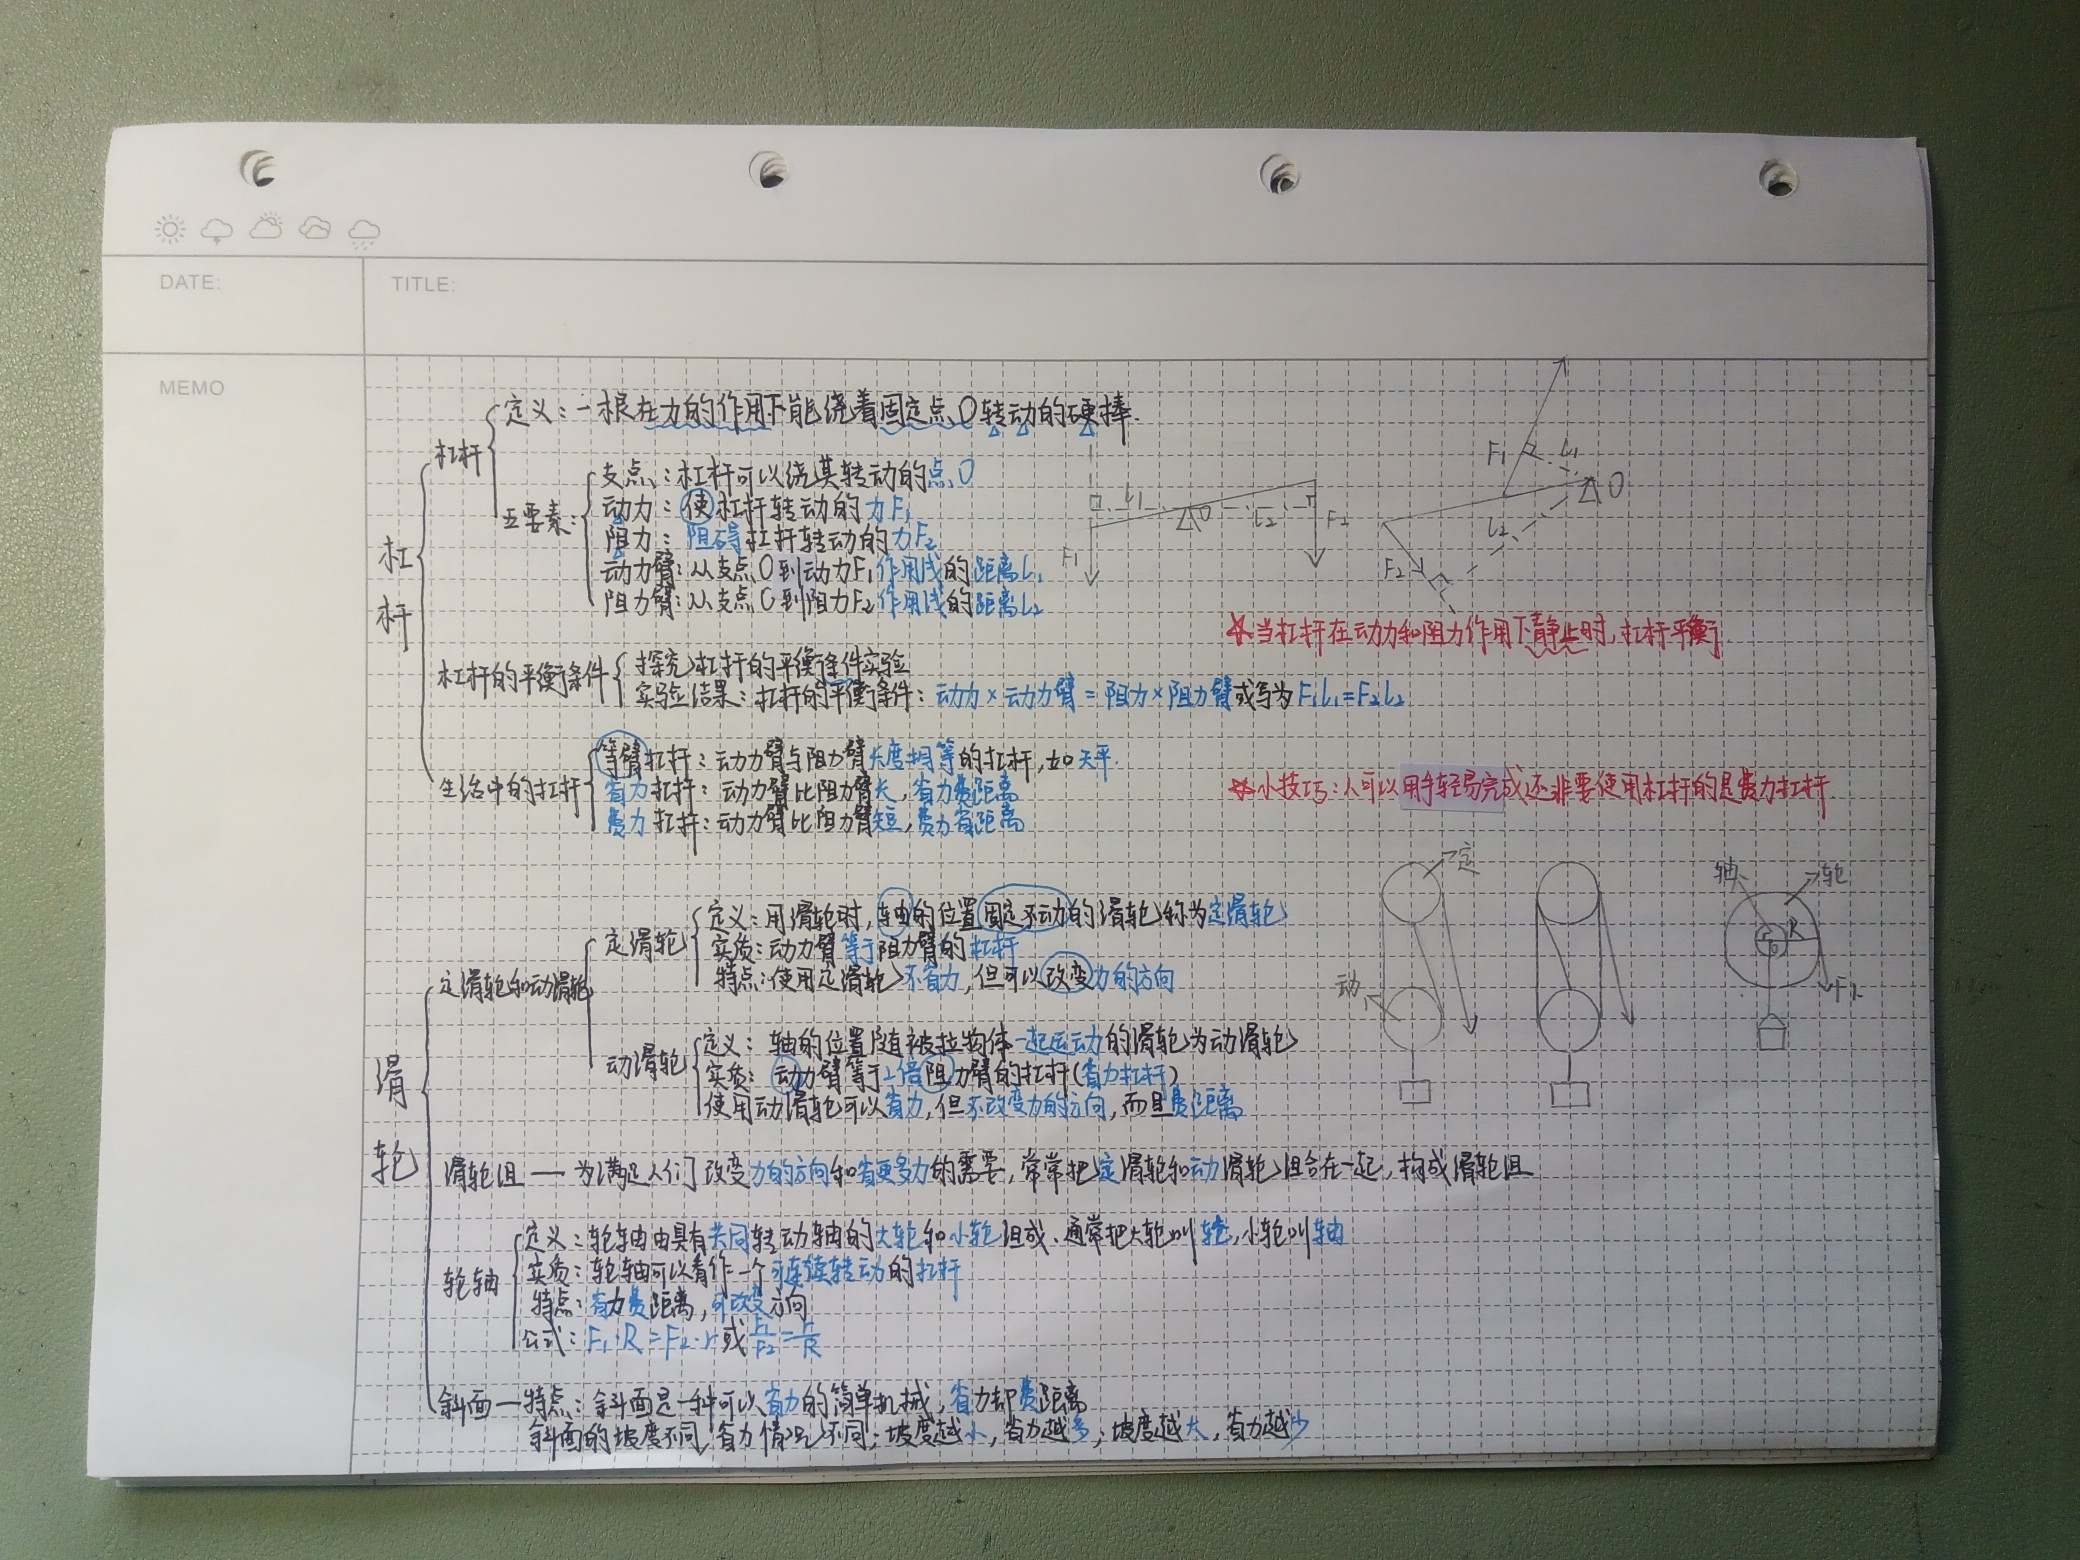 DATE:
TITLE:
MEMO
杠杆
杠杆
定义：一根在力的作用下能绕着固定点O转动的硬棒.
五要素：
支点：杠杆可以绕其转动的点O
动力：使杠杆转动的力F₁
阻力：阻碍杠杆转动的力F₂
动力臂：从支点O到动力F₁作用线的距离L₁
阻力臂：从支点O到阻力F₂作用线的距离L₂
L₁
O
L₂
F₁
F₂
F₁
L₁
O
L₂
F₂
☆当杠杆在动力和阻力作用下静止时，杠杆平衡
杠杆的平衡条件
探究杠杆的平衡条件实验
实验结果：杠杆的平衡条件：动力×动力臂=阻力×阻力臂或写为F₁L₁=F₂L₂
生活中的杠杆
等臂杠杆：动力臂与阻力臂长度相等的杠杆，如天平.
省力杠杆：动力臂比阻力臂长，省力费距离
费力杠杆：动力臂比阻力臂短，费力省距离
☆小技巧：人可以用手轻易完成还非要使用杠杆的是费力杠杆
滑轮
定滑轮和动滑轮
定滑轮
定义：用滑轮时，轴的位置固定不动的滑轮称为定滑轮
实质：动力臂等于阻力臂的杠杆
特点：使用定滑轮不省力，但可以改变力的方向
动滑轮
定义：轴的位置随被拉物体一起运动的滑轮为动滑轮
实质：动力臂等于2倍阻力臂的杠杆(省力杠杆)
使用动滑轮可以省力，但不改变力的方向，而且费距离
定
动
轴
轮
R
F₁
滑轮组—为满足人们改变力的方向和省更多力的需要，常常把定滑轮和动滑轮组合在一起，构成滑轮组
轮轴
定义：轮轴由具有共同转动轴的大轮和小轮组成、通常把大轮叫轮，小轮叫轴
实质：轮轴可以看作一个可连续转动的杠杆
特点：省力费距离，可改变方向
公式：F₁·R=F₂·r或F₁/F₂=r/R
斜面—特点：斜面是一种可以省力的简单机械，省力却费距离
斜面的坡度不同，省力情况不同；坡度越小，省力越多；坡度越大，省力越少